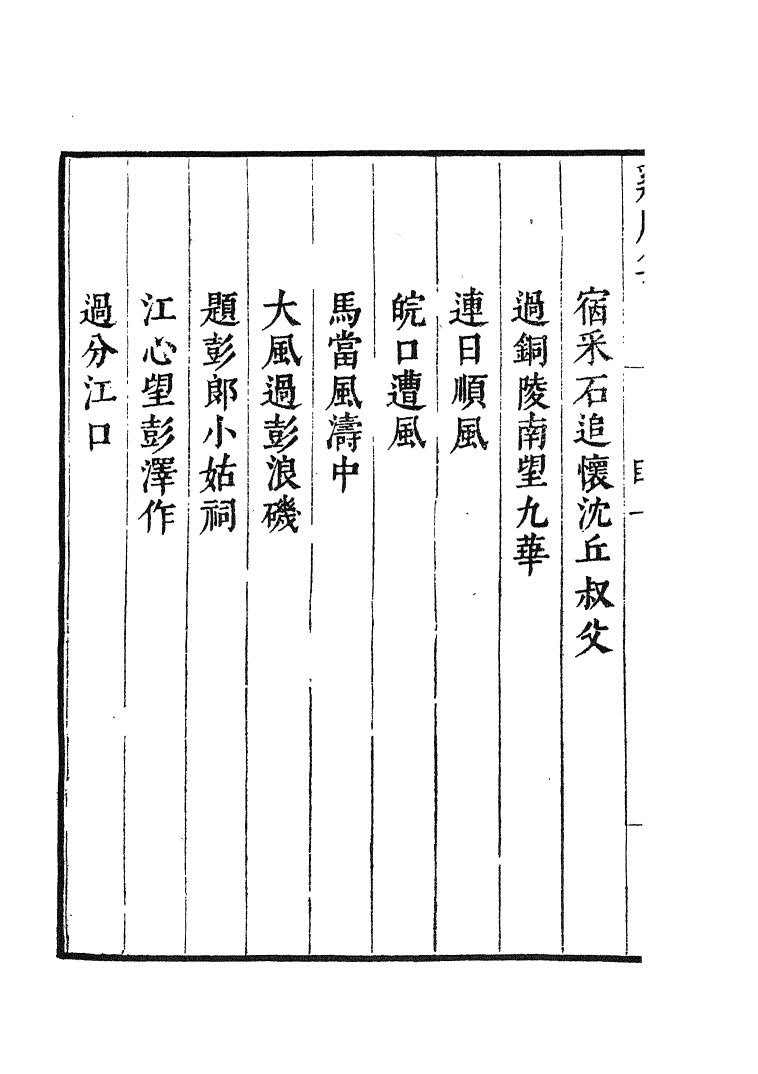 宿釆石追懷沈丘叔父
過銅陵南望九華
連日順風
皖口遭風
馬當風濤中
大風過彭浪磯
題彭郎小姑祠
江心望彭澤作
過分江口